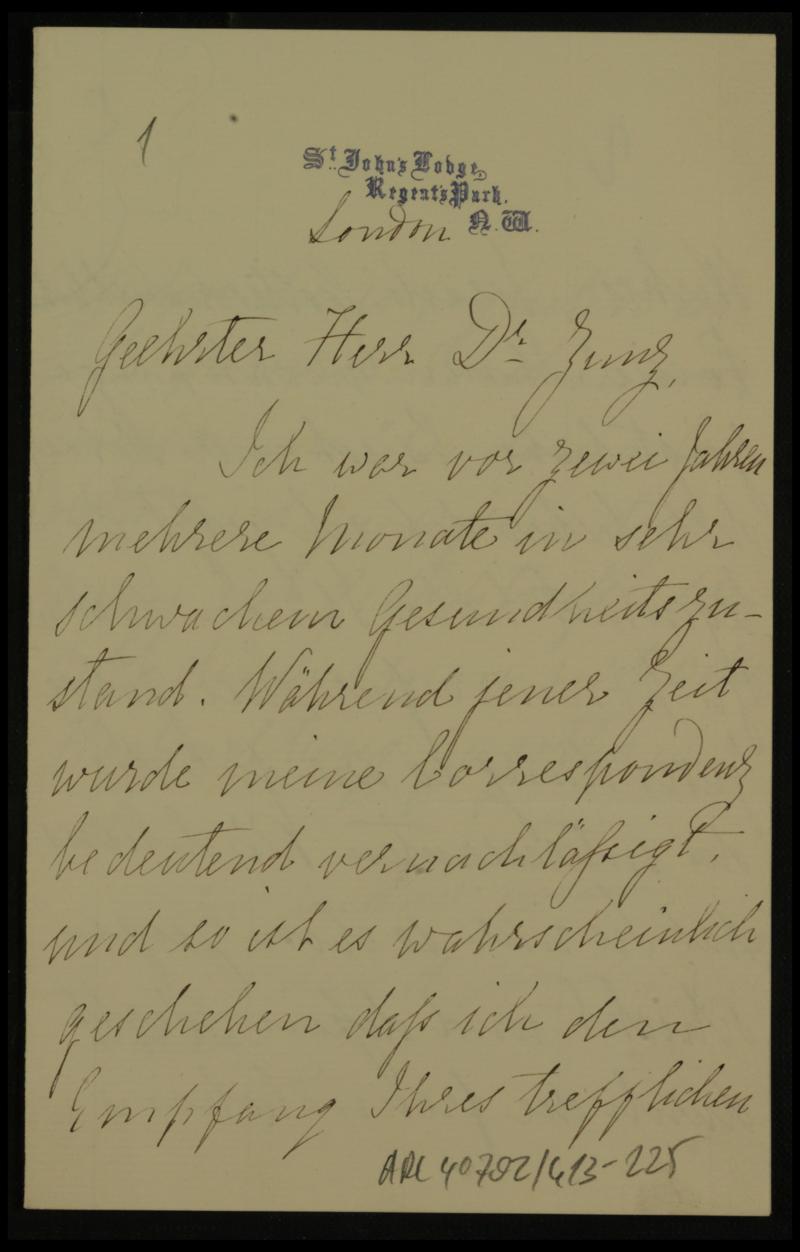 1
St. John's Lodge,
Regent's Park.
London N.W.
Geehrter Herr Dr Zunz,
Ich war vor zwei Jahren
mehrere Monate in sehr
schwachem Gesundheitszu-
stand. Während jener Zeit
wurde meine Correspondenz
bedeutend vernachläßigt,
und so ist es wahrscheinlich
geschehen daß ich den
Empfang Ihres trefflichen
ARC 40792/G13-225